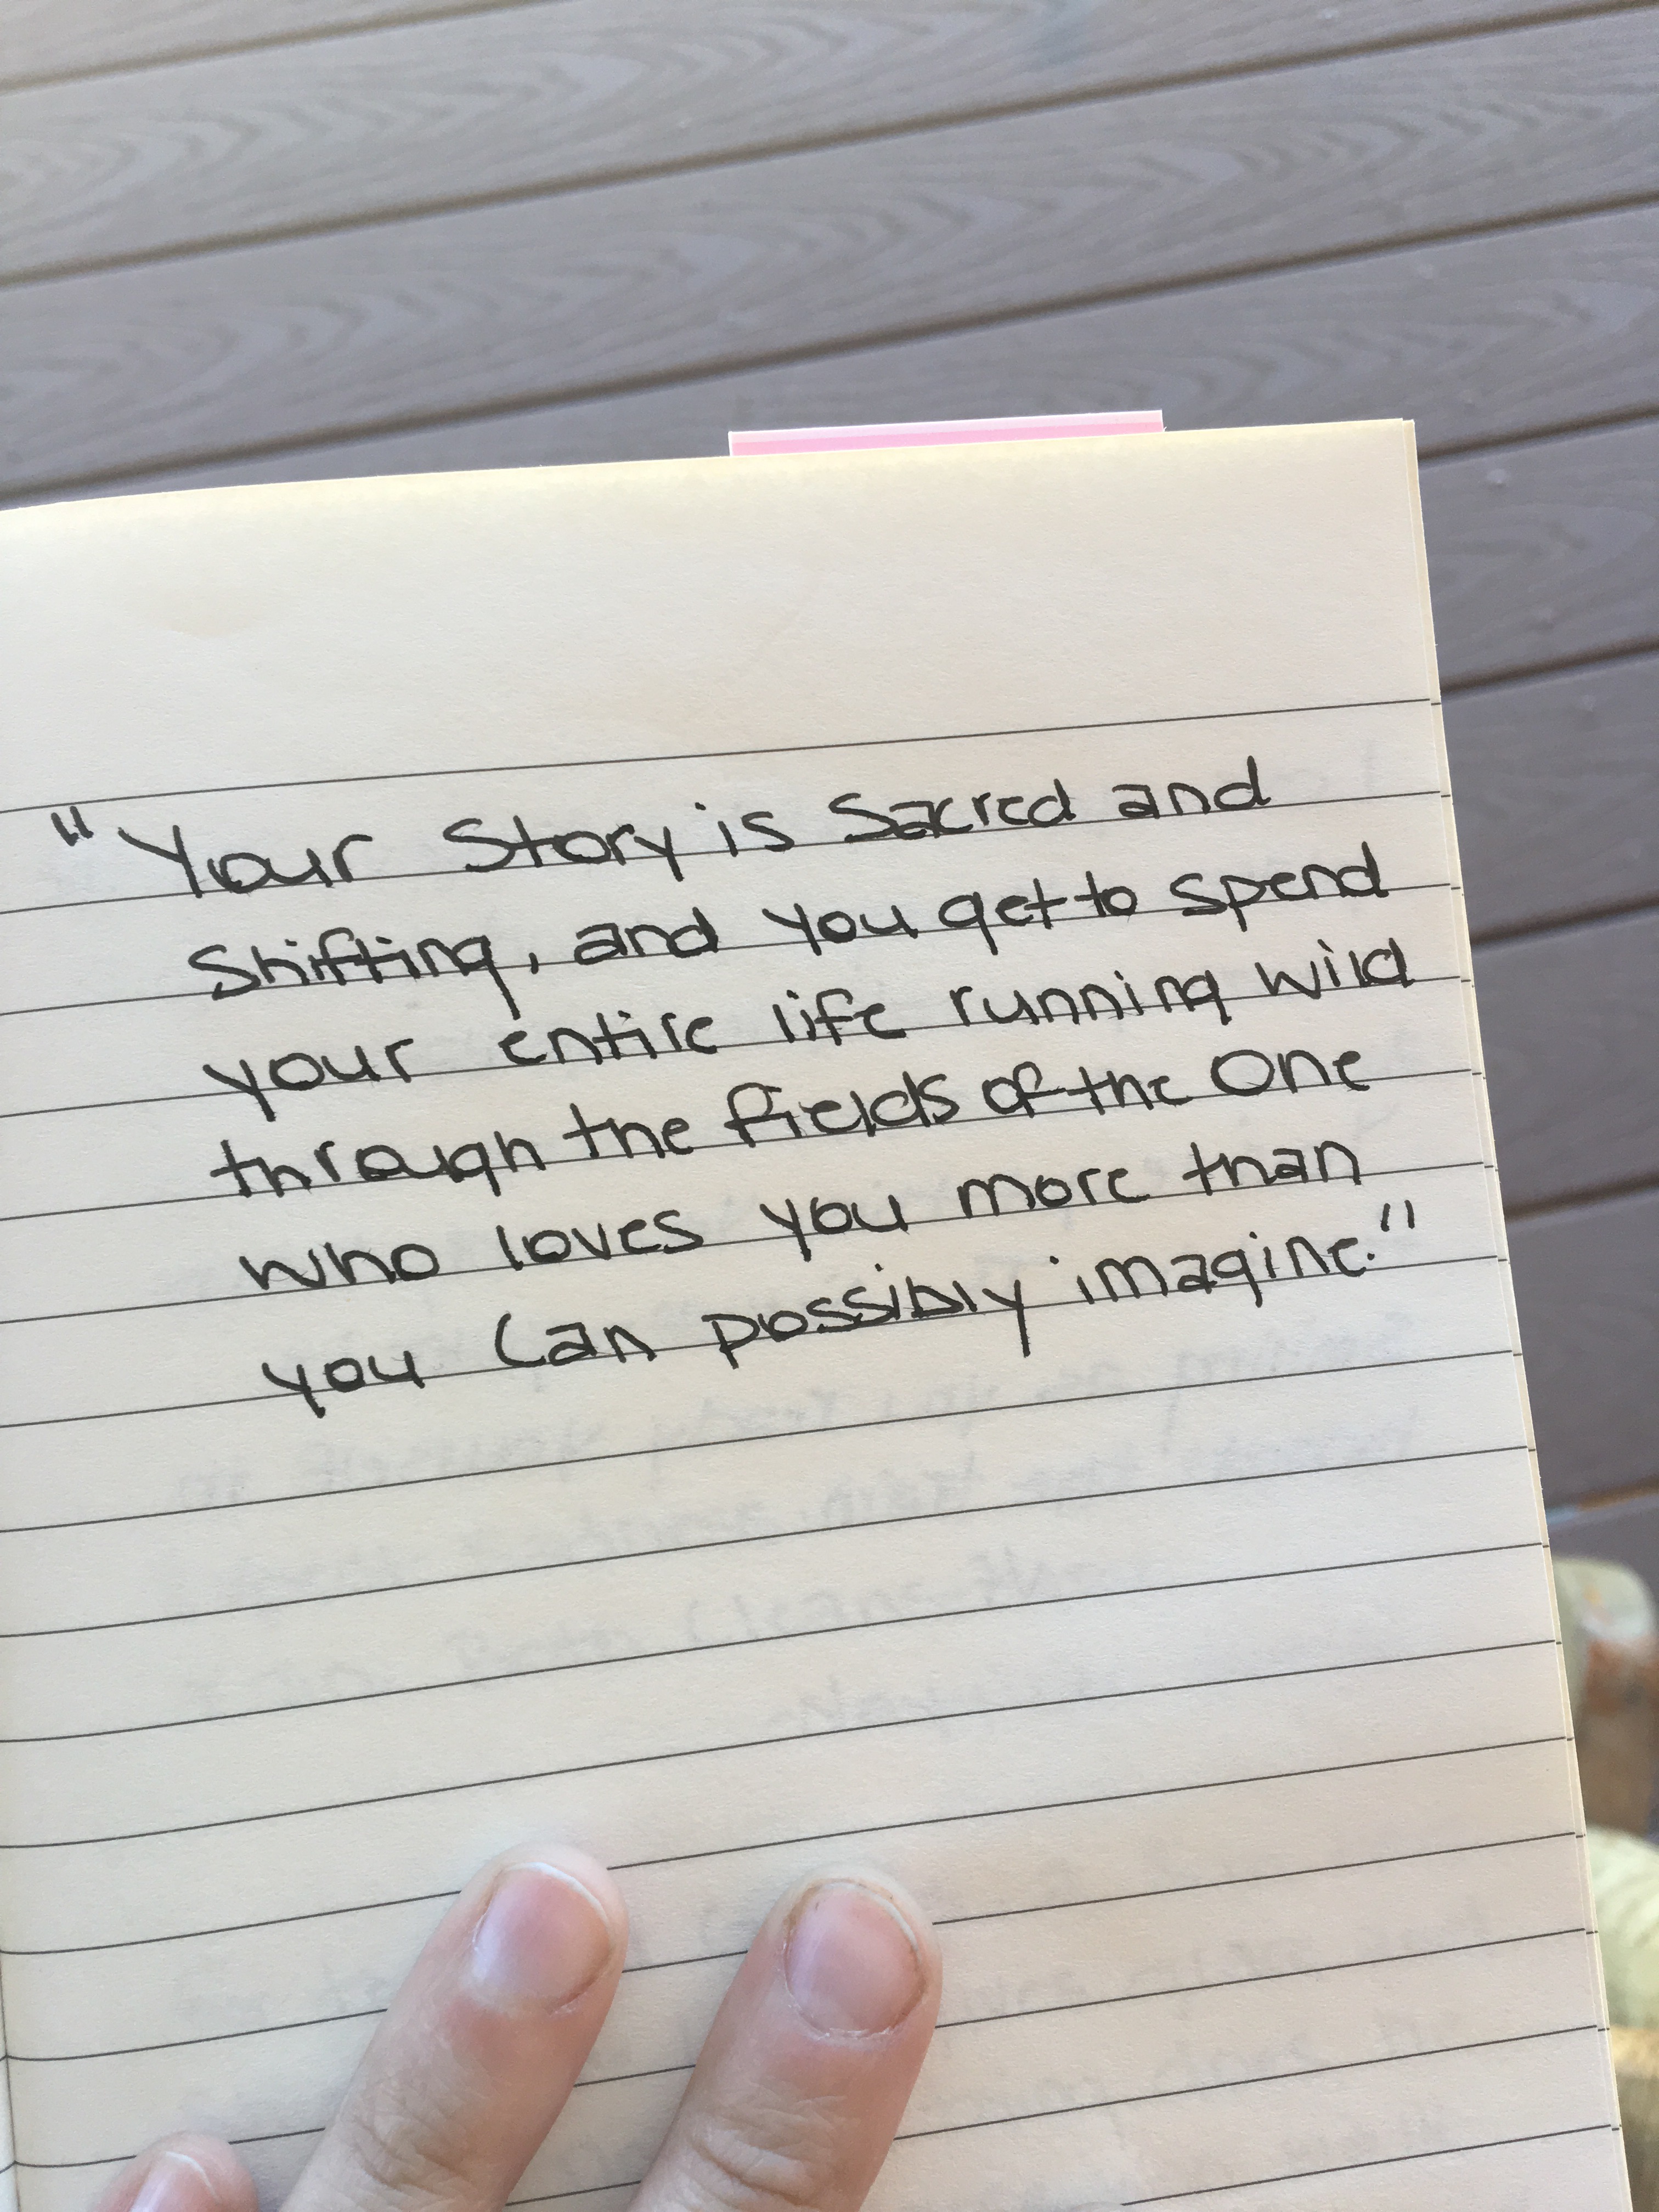 "Your Story is Sacred and
Shifting, and you get to spend
your entire life running wild
through the fields of the One
who loves you more than
you can possibly imagine."